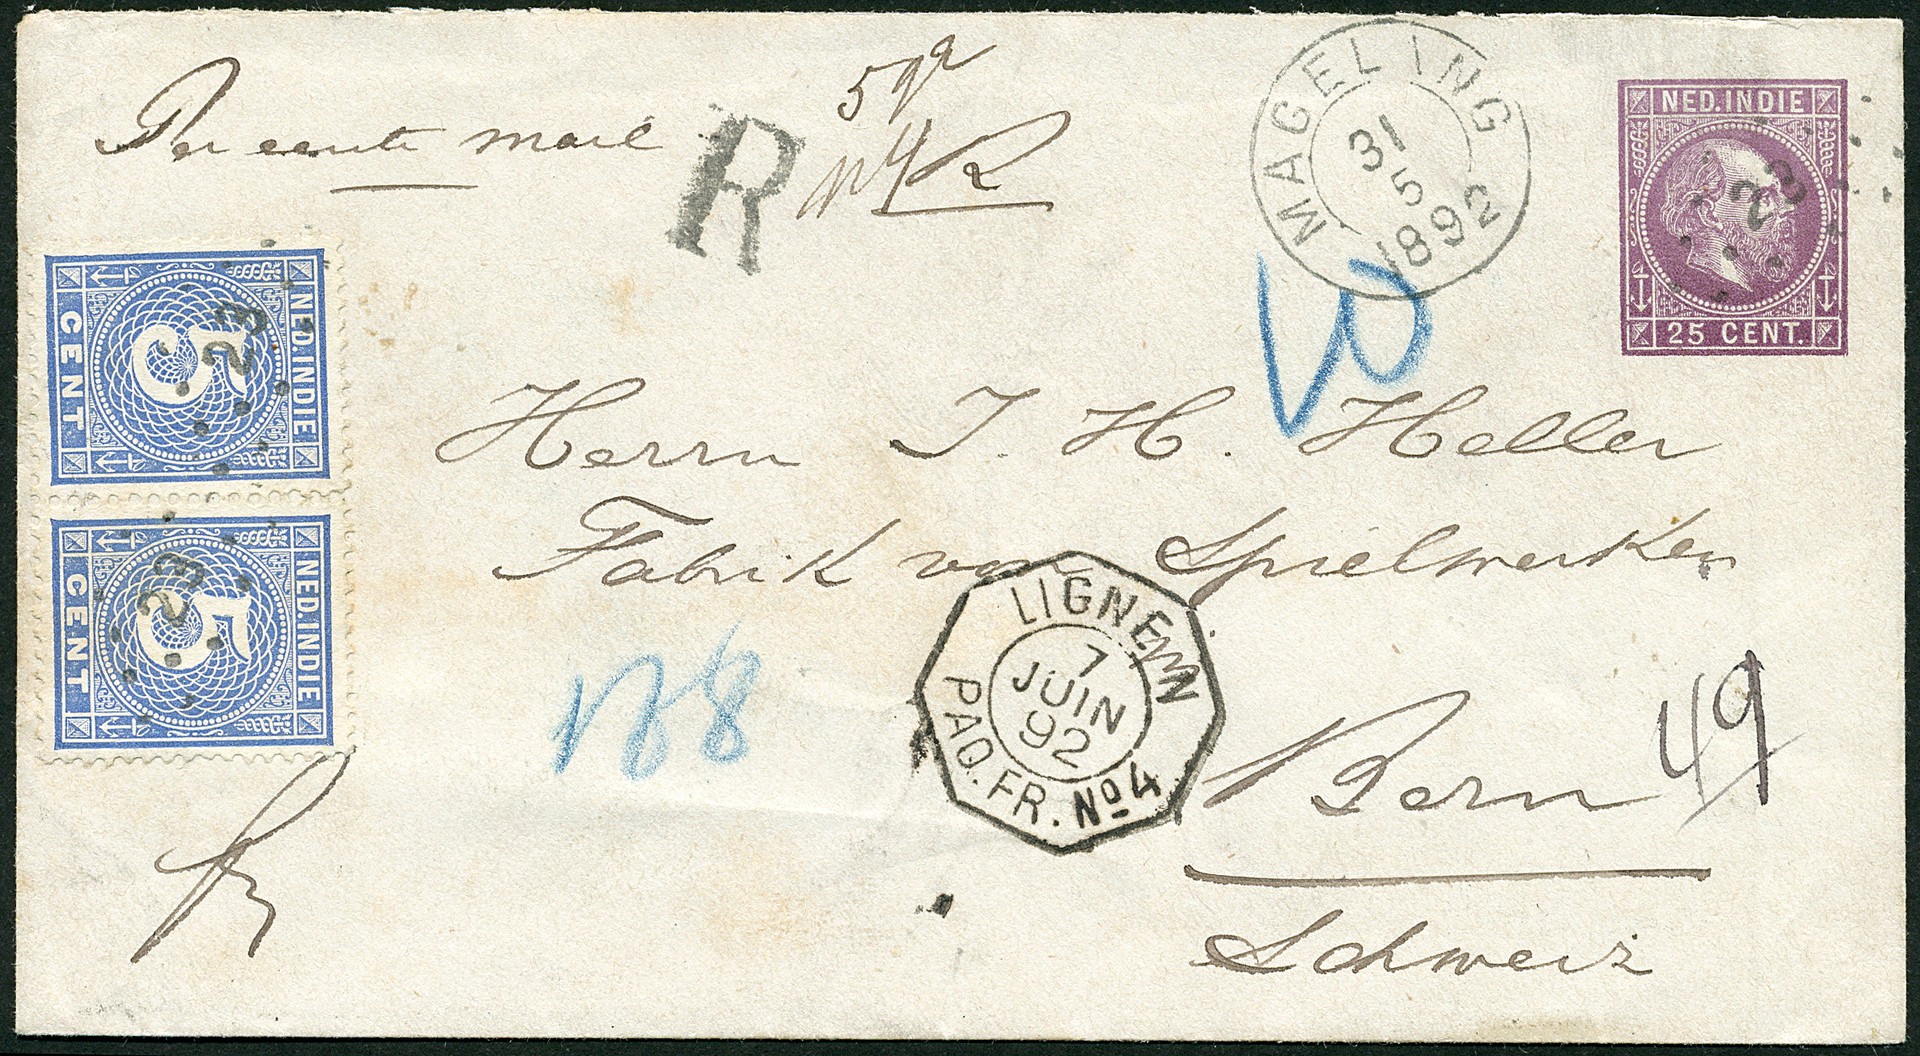 Per eerste mail
R
592
R
MAGELING
31
5
1892
NED. INDIE
23
25 CENT.
NED. INDIE
5
CENT
23
NED. INDIE
5
CENT
23
Herrn J. H. Heller
Fabrik von Spielwerken
LIGNE N
7
JUIN
92
PAQ. FR. No 4
Bern
49
Schweiz